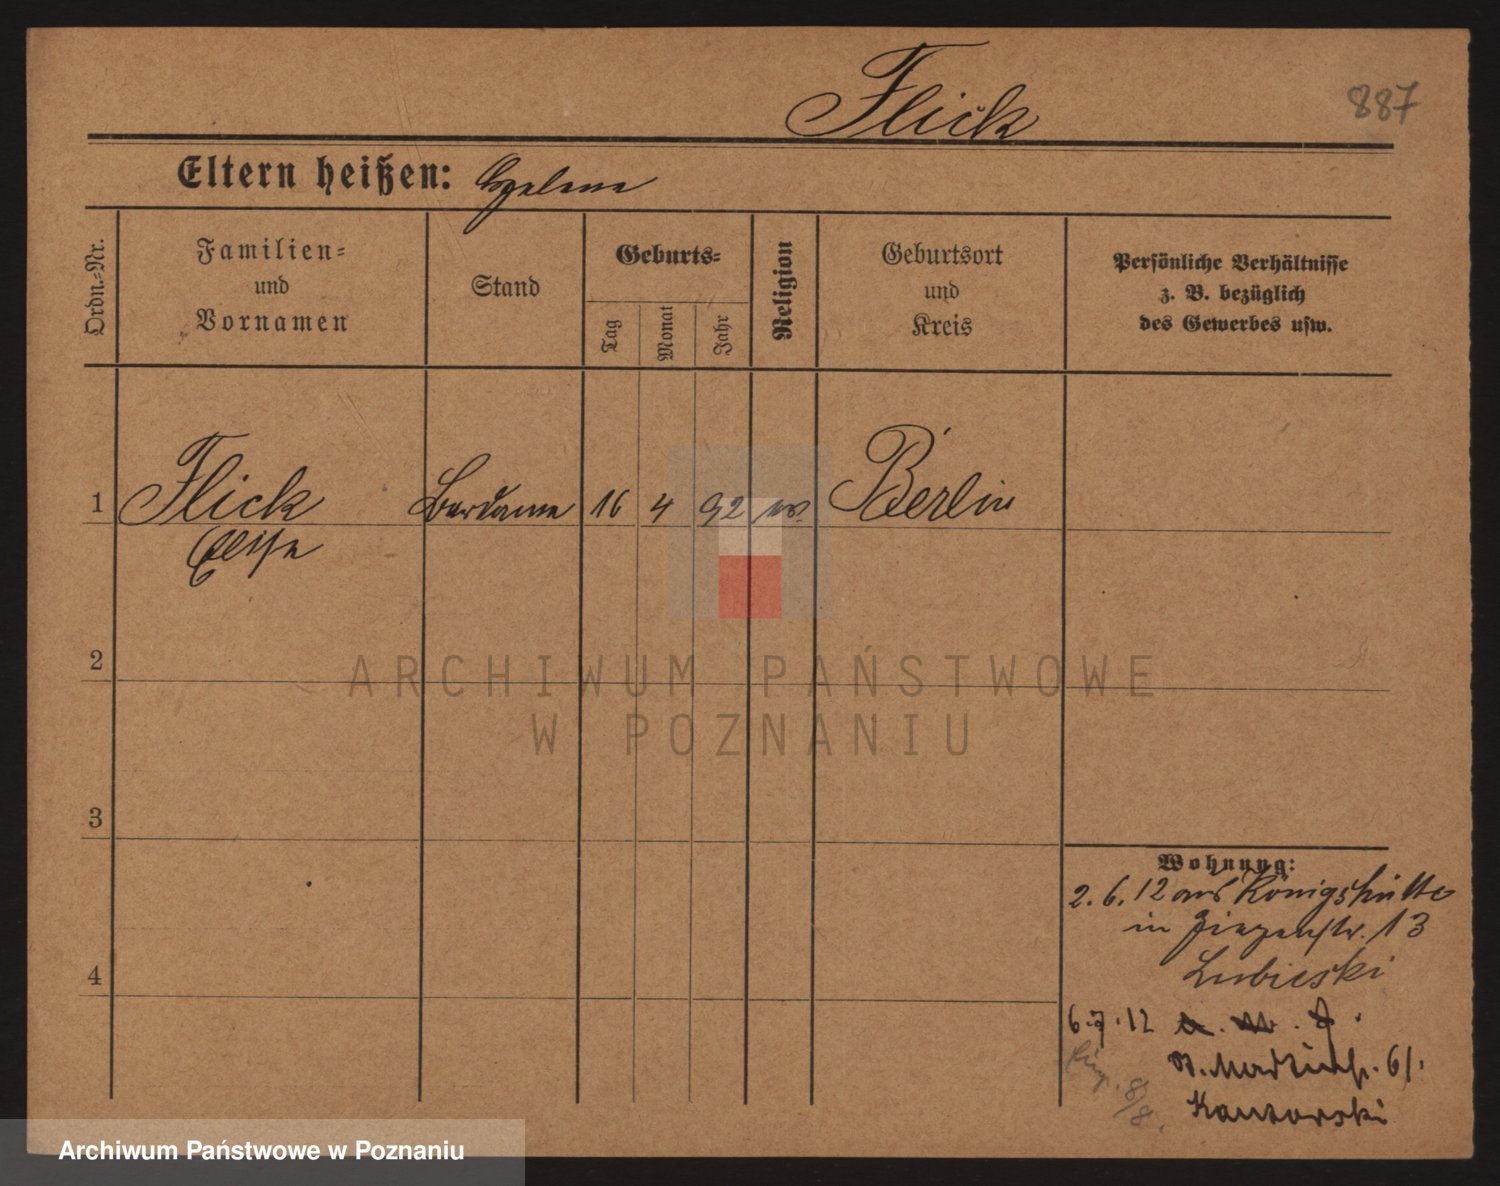 Flick
887
Eltern heißen: Helene
Ordn.-Nr.
Familien-
und
Vornamen
Stand
Geburts-
Tag
Monat
Jahr
Religion
Geburtsort
und
Kreis
Persönliche Verhältnisse
z. B. bezüglich
des Gewerbes usw.
1 Flick Bardame 16 4 92 ev Berlin
Elise
2
3
4
Wohnung:
2. 6. 12 aus Königshütte
in Ziegenstr. 13
Lubieski
6.7.12
St. Martinstr. 61.
Kantorski
8/8.
ARCHIWUM PAŃSTWOWE
W POZNANIU
Archiwum Państwowe w Poznaniu